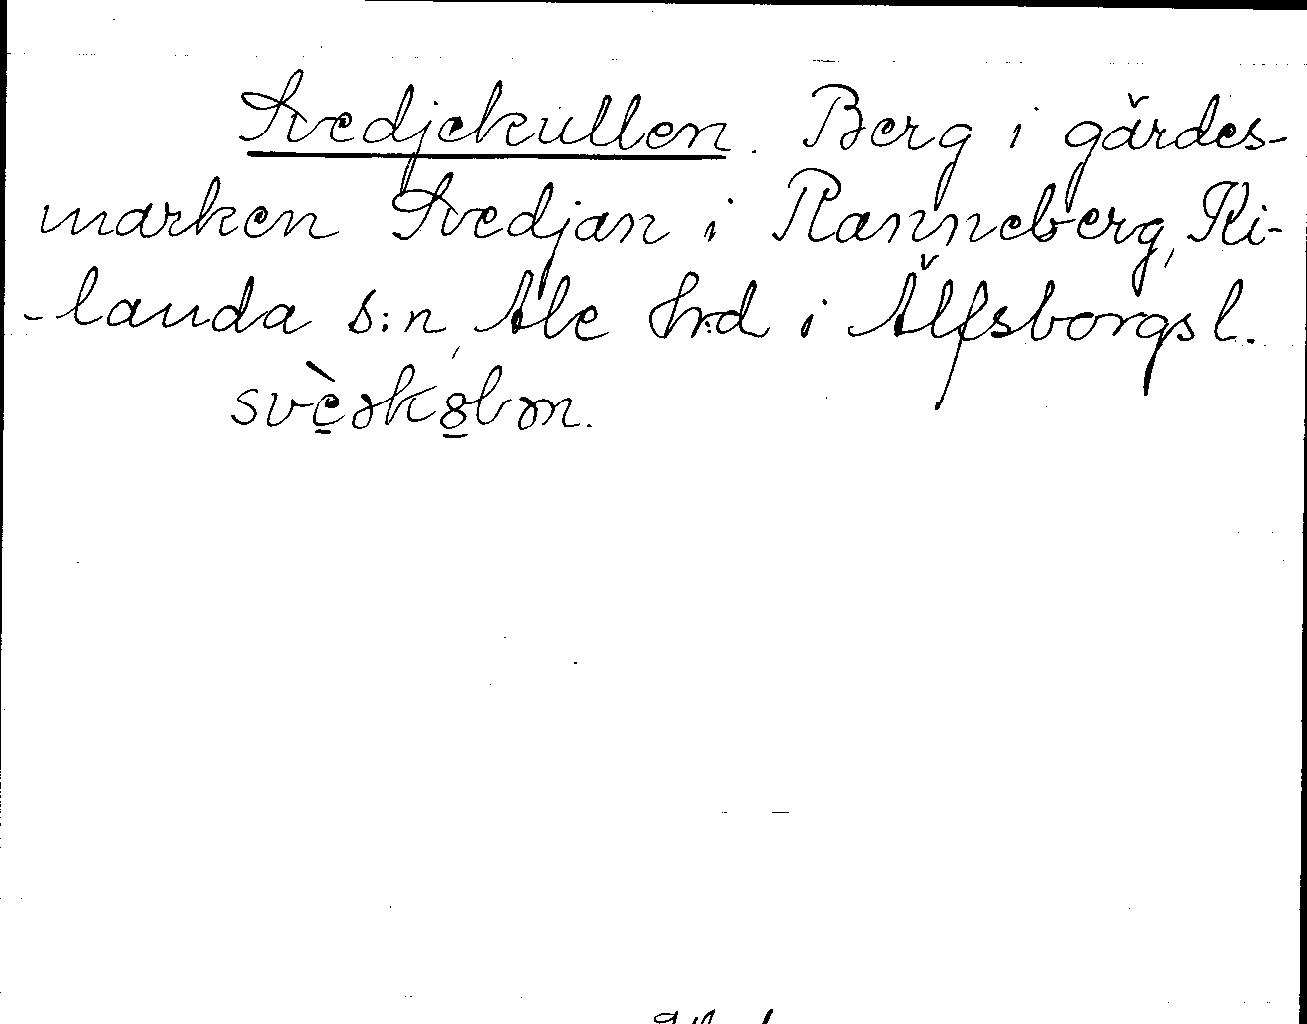 Svedjekullen. Berg i gärdes-
marken Svedjan i Ranneberg, Ri-
-landa s:n, Ale hrd i Älfsborgs l.